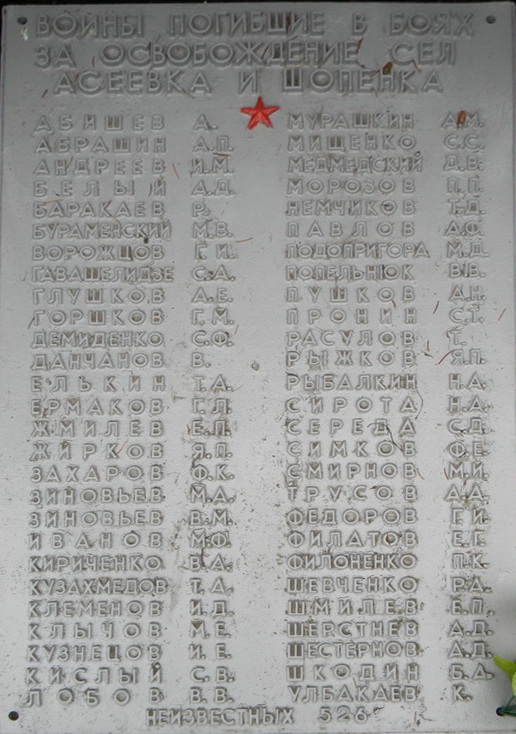 ВОЙНЫ ПОГИБШИЕ В БОЯХ
ЗА ОСВОБОЖДЕНИЕ СЕЛ
АСЕЕВКА И ШОПЕНКА
АБИШЕВ А.
АБРАШИН А.П.
АНДРЕЕВ И.М.
БЕЛЫЙ А.Д.
БАРАКАЕВ Р.
БУРАМЕНСКИЙ М.В.
ВОРОЖЦОВ Г.И.
ГАВАШЕЛИДЗЕ С.А.
ГЛУШКОВ А.Е.
ГОРШКОВ Г.М.
ДЕМИДЕНКО С.Ф.
ДАНЧАНОВ В.
ЕЛЬКИН Т.А.
ЕРМАКОВ Г.Л.
ЖМИЛЕВ Е.П.
ЖИРКОВ Я.П.
ЗАХАРОВ Ф.К.
ЗИНОВЬЕВ М.А.
ЗИНОВЬЕВ В.М.
ИВАНОВ М.Ф.
КИРИЧЕНКО В.А.
КУЗАХМЕДОВ Т.А.
КЛЕМЕНОВ И.Д.
КЛЫЧОВ М.Е.
КУЗНЕЦОВ И.Е.
КИСЛЫЙ С.В.
ЛОБОВ В.В.
МУРАШКИН А.М.
МИЩЕНКО С.С.
МЕДМЕДСКИЙ Д.В.
МОРОЗОВ П.П.
НЕМЧИКОВ Т.Д.
ПАВЛОВ А.Ф.
ПОДОПРИГОРА М.Д.
ПОПЕЛЬНЮК В.В.
ПУШКОВ А.Н.
ПРОНИН С.Т.
РАСУЛОВ Т.
РЫЖКОВ Я.П.
РЫБАЛКИН Н.А.
СИРОТА Н.А.
СЕРЕДА С.Д.
СИМКОВ Ф.Е.
СМИРНОВ М.И.
ТРУСОВ А.А.
ФЕДОРОВ Г.И.
ФИЛАТОВ Е.Г.
ФИЛОНЕНКО П.К.
ШЕВЧЕНКО Р.А.
ШМИЛЕВ Е.П.
ШЕРСТНЕВ А.Д.
ШЕСТЕРНОВ А.Д.
ШКОДИН Б.А.
УЛБАКАЕВ К.
НЕИЗВЕСТНЫХ 526